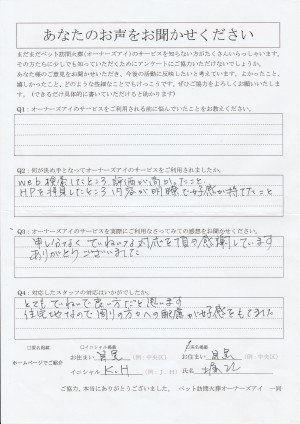 あなたのお声をお聞かせください
まだまだペット訪問火葬(オーナーズアイ)のサービスを知らない方がたくさんいらっしゃいます。
その方たちに少しでも知っていただくためにアンケートにご協力いただけないでしょうか。
あなた様のご意見をお聞かせいただき、今後の活動に反映したいと考えています。よかったこと、
嬉しかったこと、どのような些細なことでもけっこうです。ぜひご協力をよろしくお願いいたします。
(できるだけ具体的に書いていただけると助かります)
Q1:オーナーズアイのサービスをご利用される前に悩んでいたことをお教えください。
Q2:何が決め手となってオーナーズアイのサービスをご利用されましたか。
Web検索したところ、評価が高かったこと
HPを拝見したところ、内容が明瞭で好感が持てたこと
Q3:オーナーズアイのサービスを実際にご利用なさってみての感想をお聞かせください。
申し分なく ていねいな対応を頂き感謝しています
ありがとうございました
Q4:対応したスタッフの対応はいかがでしたか。
とてもていねいで良い方だと思います
住宅地なので周りの方々への配慮が好感をもてました
ホームページでご紹介
□匿名掲載 □イニシャル掲載
お住まい (例:中央区)
イニシャル K.H (例:J・H)
実名掲載
お住まい (例:中央区)
氏名
ご協力、本当にありがとうございました。 ペット訪問火葬オーナーズアイ 一同